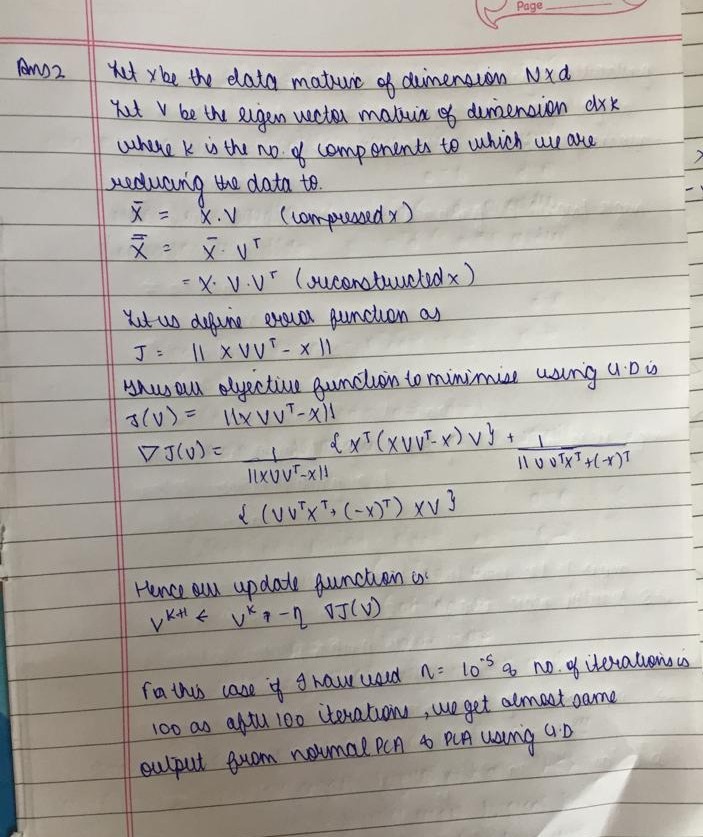 Page
Ans 2 Let x be the data matrix of dimension N x d
Let V be the eigen vector matrix of dimension dxk
where K is the no. of components to which we are
reducing the data to.
X̄ = X.V (compressed x)
X̿ = X̄. Vᵀ
= X. V. Vᵀ (reconstructed x)
Let us define error function as
J = || X V Vᵀ - X ||
Thus our objective function to minimise using G.D is
J(V) = ||XVVᵀ-X||
∇J(V) = 1/||XVVᵀ-X|| { Xᵀ(XVVᵀ-X)V } + 1/||VVᵀXᵀ+(-X)ᵀ
{ (VVᵀXᵀ+(-X)ᵀ) XV }
Hence our update function is:
Vᴷ⁺¹ ← Vᴷ - η ∇J(V)
For this case if I have used η = 10⁻⁵ & no. of iterations is
100 as after 100 iterations, we get almost same
output from normal PCA & PCA using G.D